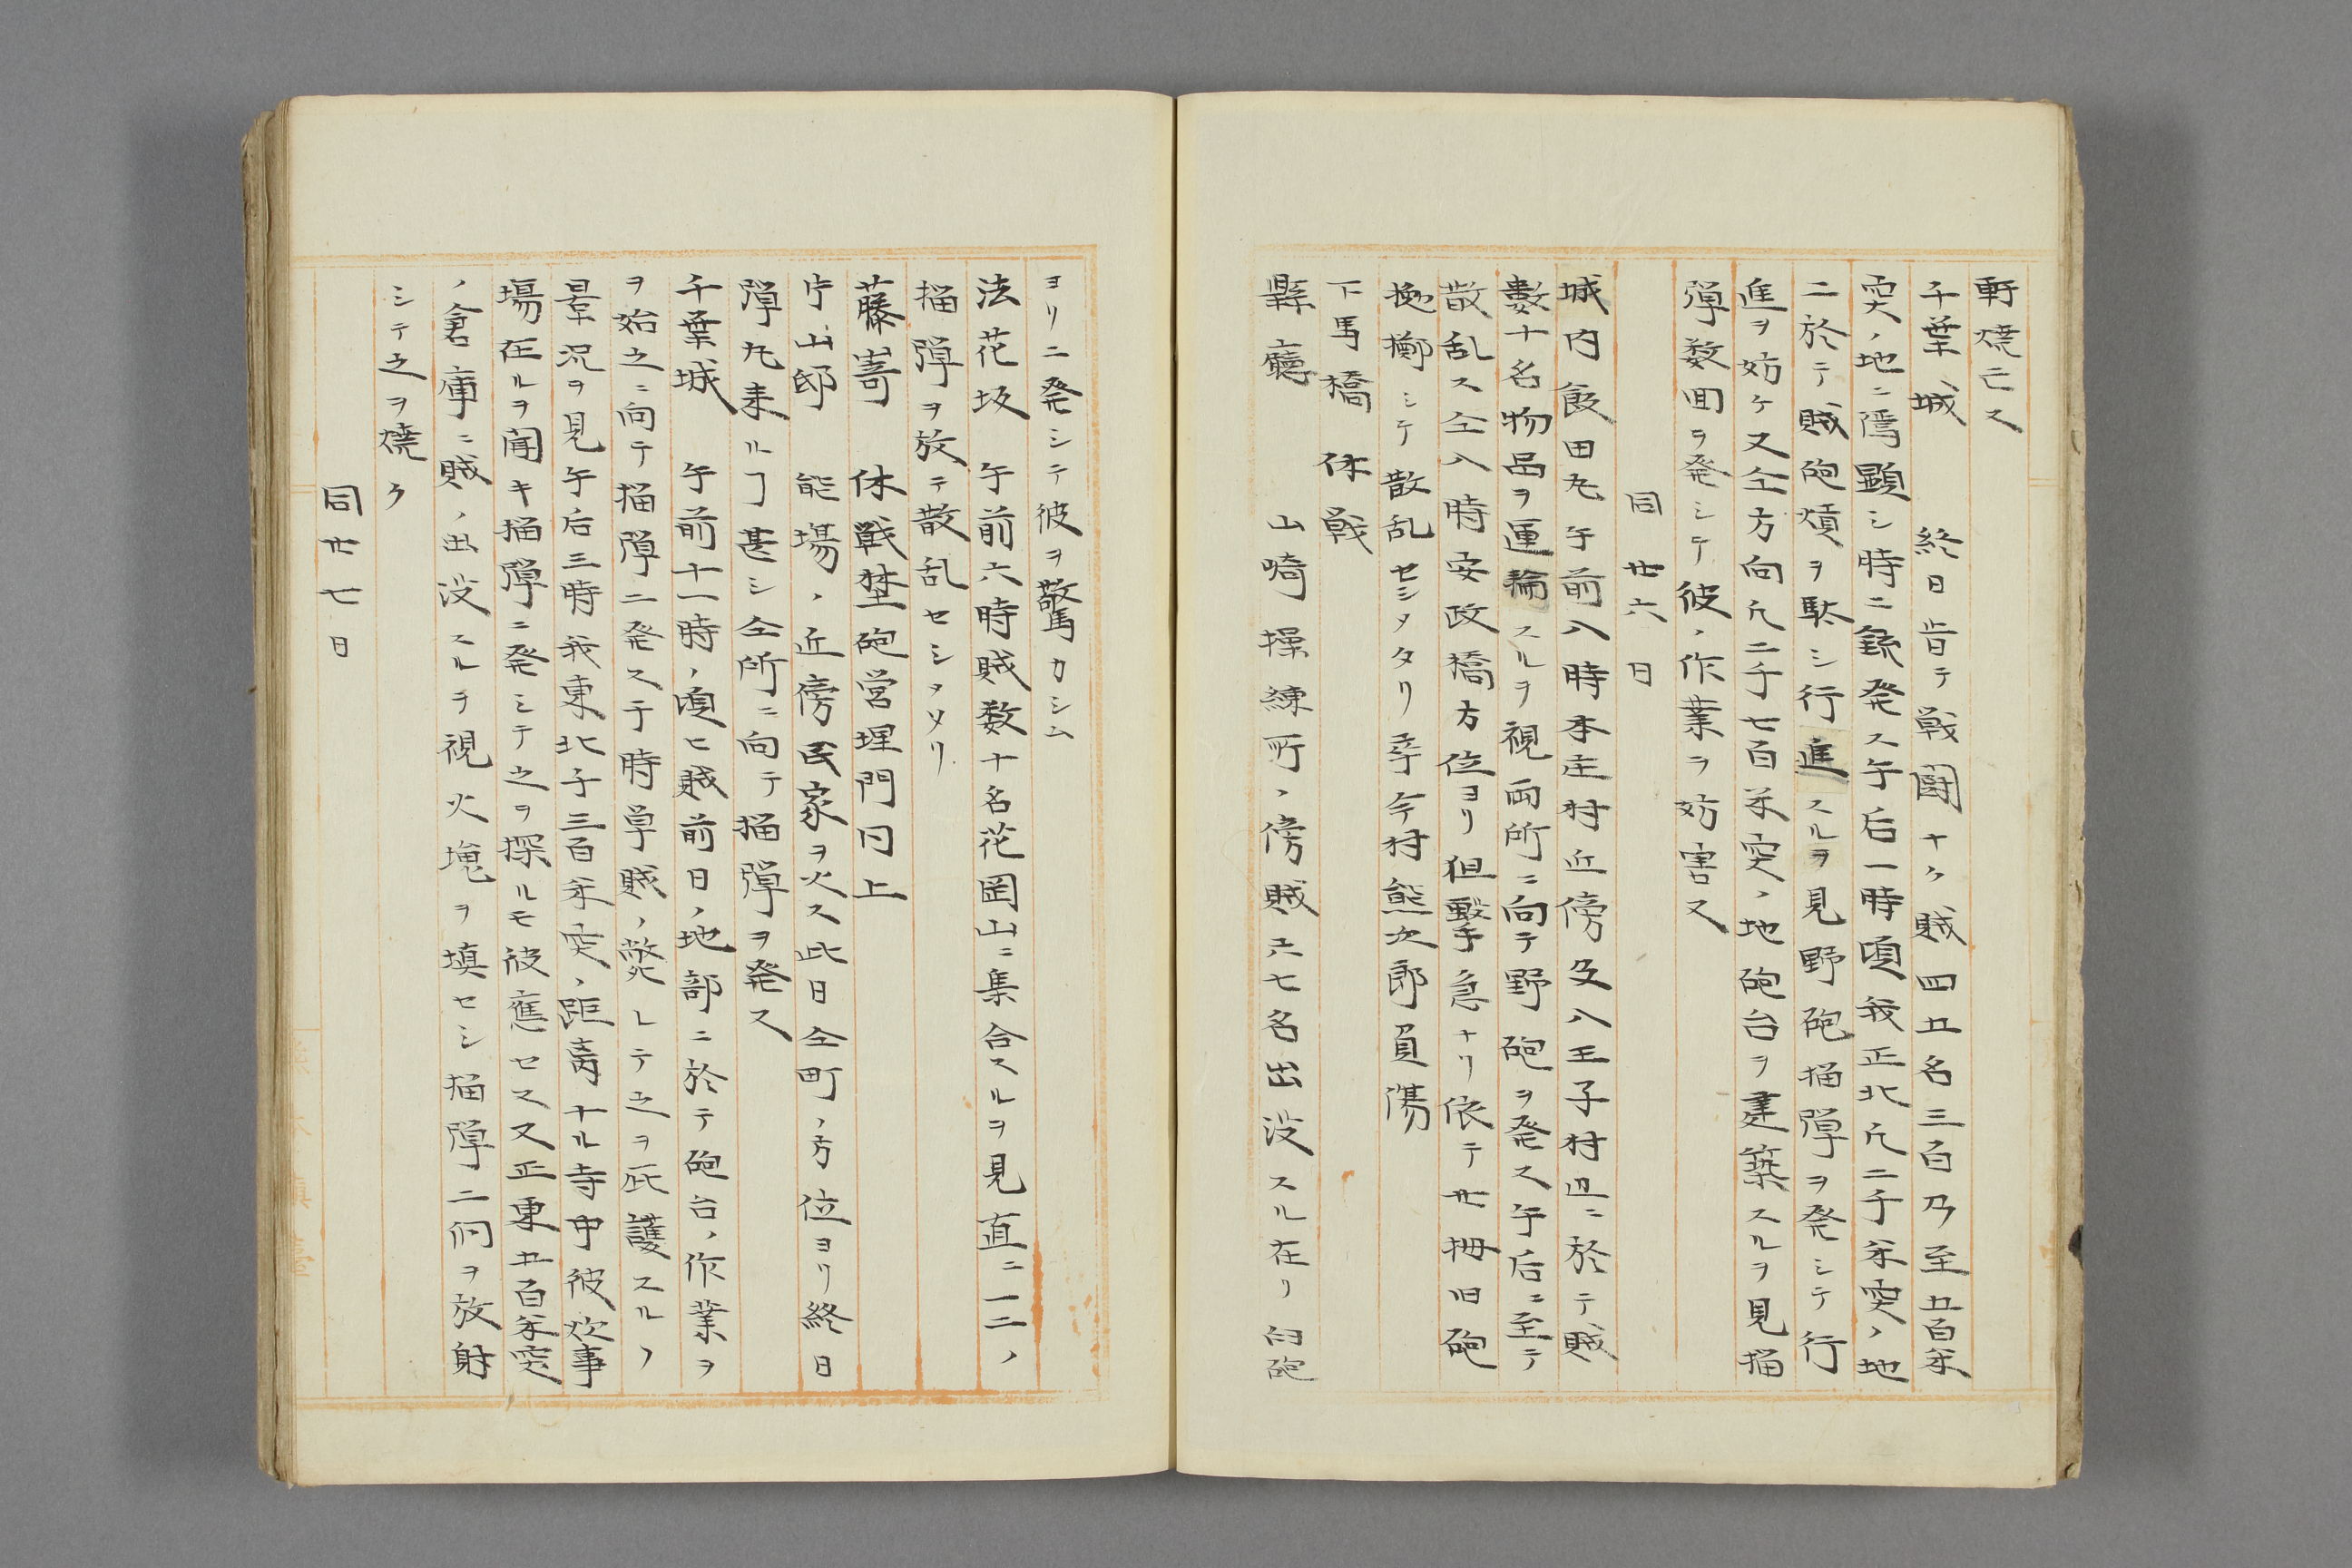 軒焼亡ス
千葉城　終日昔テ戦闘ナク賊四五名三百乃至五百米
突ノ地ニ隠顕シ時ニ銃発ス午后一時頃我正北凡二千米突ノ地
ニ於テ賊砲熕ヲ駄シ行進スルヲ見野砲榴弾ヲ発シテ行
進ヲ妨ケ又仝方向凡二千七百米突ノ地砲台ヲ建築スルヲ見榴
弾数回ヲ発シテ彼ノ作業ヲ妨害ス
同廿六日
城内飯田丸午前八時本庄村近傍及八王子村辺ニ於テ賊
数十名物品ヲ運輸スルヲ視両所ニ向テ野砲ヲ発ス午后ニ至テ
散乱ス仝八時安政橋方位ヨリ但撃急ナリ依テ廿拇臼砲
抛擲シテ散乱セシメタリ卒今村熊次郎負傷
下馬橋　休戦
縣廳　山崎操練所ノ傍賊六七名出没スル在リ臼砲
ヨリ二発シテ彼ヲ驚カシム
法花坂　午前六時賊数十名花岡山ニ集合スルヲ見直ニ一二ノ
榴弾ヲ放テ散乱セシメタリ
藤嵜　休戦埜砲営埋門同上
片山邸　能場ノ近傍民家ヲ火ス此日仝町ノ方位ヨリ終日
弾丸来ルヿ甚シ仝所ニ向テ榴弾ヲ発ス
千葉城　午前十一時ノ頃ヒ賊前日ノ地部ニ於テ砲台ノ作業ヲ
ヲ始之ニ向テ榴弾二発ス于時単賊ノ斃レテ之ヲ庇護スルノ
景況ヲ見午后三時我東北千三百米突ノ距离ナル寺中彼炊事
場在ルヲ聞キ榴弾ニ発シテ之ヲ探ルモ彼應セス又正東五百米突
ノ倉庫ニ賊ノ出没スルヲ視火塊ヲ填セシ榴弾二個ヲ放射
シテ之ヲ焼ク
同廿七日